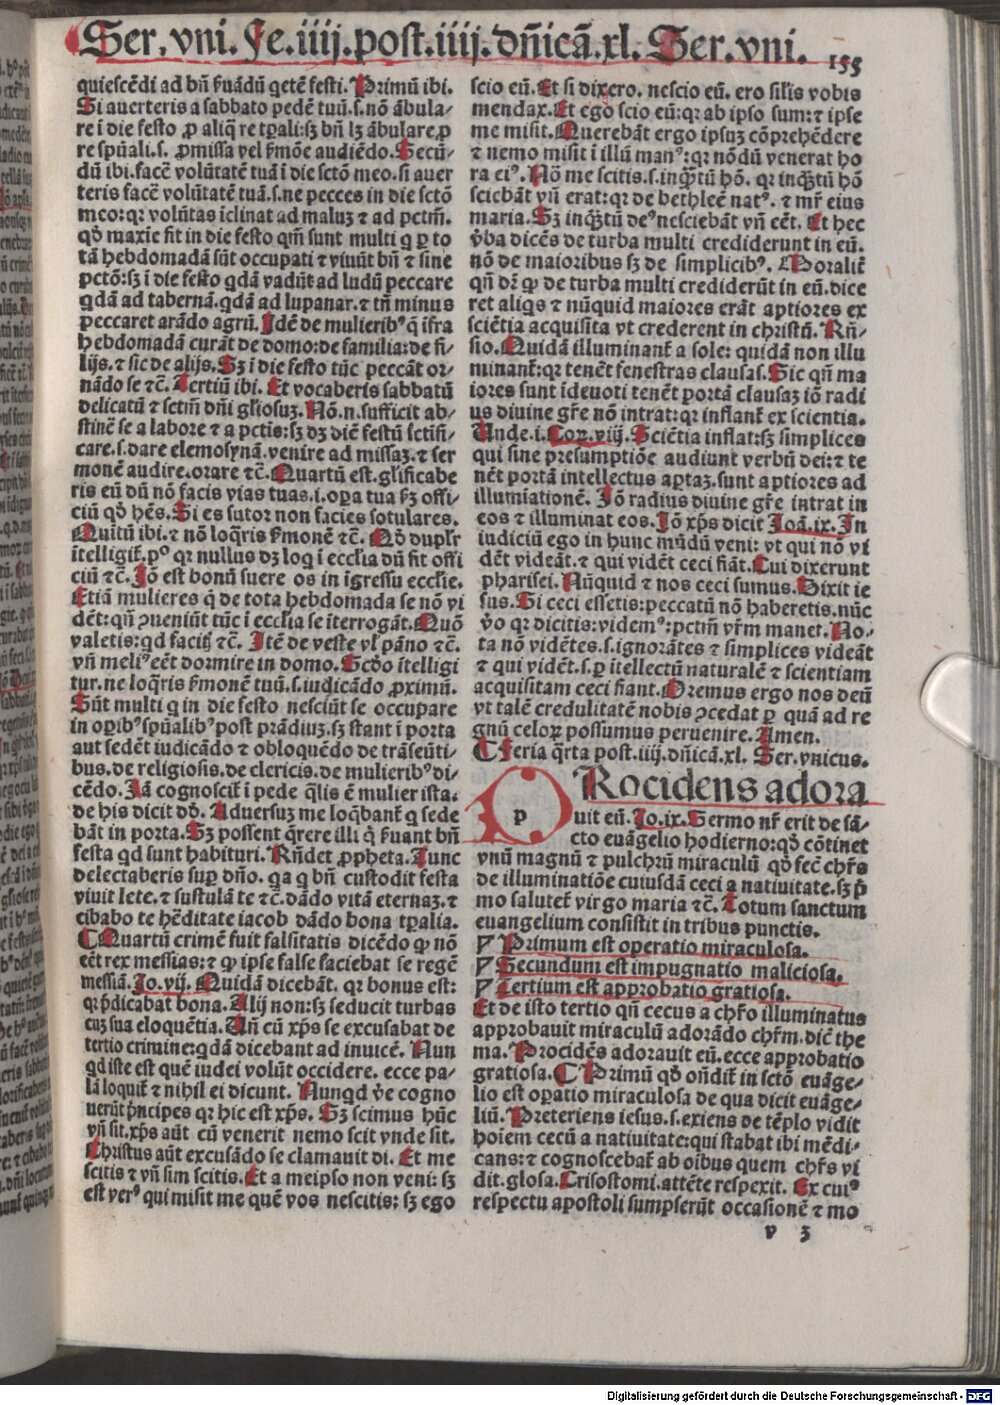 Ser. vni. Fe. iiij. post. iiij. dñicã. xl. Ser. vni. 155
quiescẽdi ad bñ ẜuãdũ qetẽ festi. Primũ ibi.
Si auerteris a sabbato pedẽ tuũ. s. nõ ãbula⸗
re i die festo ꝓ aliq̃ re tꝑali: sꝫ bñ lꝫ ãbulare ꝓ
re spũali. s. ꝓmissa vel ẜmõe audiẽdo. Secũ⸗
dũ ibi. facẽ volũtatẽ tuã i die sctõ meo. si auer
teris facẽ volũtatẽ tuã. s. ne pecces in die sctõ
meo: qꝛ volũtas iclinat ad maluꝫ ⁊ ad pctm̃.
qđ maxĩe fit in die festo qm̃ sunt multi q ꝑ to
tã hebdomadã sũt occupati ⁊ viuũt bñ ⁊ sine
pctõ: sꝫ i die festo qdã vadũt ad ludũ peccare
qdã ad tabernã. qdã ad lupanar. ⁊ tñ minus
peccaret arãdo agrũ. Idẽ de mulieribꝰ q̃ ifra
hebdomadã curãt de domo: de familia: de fi⸗
lijs. ⁊ sic de alijs. Sꝫ i die festo tũc peccãt or⸗
nãdo se ⁊c̃. Tertiũ ibi. Et vocaberis sabbatũ
delicatũ ⁊ sctm̃ dñi gl̃iosuꝫ. Nõ. n. sufficit ab⸗
stinẽ se a labore ⁊ a pctis: sꝫ dꝫ diẽ festũ sctifi⸗
care. i. dare elemosynã. venire ad missaꝫ. ⁊ ser
monẽ audire. orare ⁊c̃. Quartũ est. gl̃ificabe
ris eũ dũ nõ facis vias tuas. i. oꝑa tua ẜꝫ offi⸗
ciũ qđ hẽs. Si es sutor non facies sotulares.
Quĩtũ ibi. ⁊ nõ loq̃ris ẜmonẽ ⁊c̃. Qđ duplr̃
ĩtelligit̃. pº qꝛ nullus dꝫ loq i eccl̃ia dũ fit offi
ciũ ⁊c̃. Iõ est bonũ suere os in ĩgressu eccl̃ie.
Etiã mulieres q̃ de tota hebdomada se nõ vi
dẽt: qñ ꝯueniũt tũc i eccl̃ia se iterrogãt. Quõ
valetis: qd facitꝭ ⁊c̃. Itẽ de veste vl̃ pãno ⁊c̃.
vñ meliꝰ eẽt dormire in domo. Scđo ĩtelligi
tur. ne loq̃ris ẜmonẽ tuũ. s. iudicãdo ꝓximũ.
Sũt multi q in die festo nesciũt se occupare
in oꝑibꝰ spũalibꝰ post prãdiuꝫ. sꝫ stant i porta
aut sedẽt iudicãdo ⁊ obloquẽdo de trãseũti⸗
bus. de religiosis. de clericis. de mulieribꝰ di⸗
cẽdo. Iã cognoscit̃ i pede q̃lis ẽ mulier ista.
de his dicit dđ. Aduersuꝫ me loq̃bant̃ q sede
bãt in porta. Sꝫ possent q̃rere illi q̃ ẜuant bñ
festa qd sunt habituri. Rñdet ꝓpheta. Tunc
delectaberis suꝑ dño. qa q bñ custodit festa
viuit lete. ⁊ sustulã te ⁊c̃. dãdo vitã eternaꝫ. ⁊
cibabo te hẽditate iacob dãdo bona tꝑalia.
¶ Quartũ crimẽ fuit falsitatis dicẽdo ꝙ nõ
eẽt rex messias: ⁊ ꝙ ipse false faciebat se regẽ
messiã. Io. vij. Quidã dicebãt. qꝛ bonus est:
qꝛ p̃dicabat bona. Alij non: sꝫ seducit turbas
cuꝫ sua eloquẽtia. Un̄ cũ xp̃s se excusabat de
tertio crimine: qdã dicebant ad inuicẽ. Nun
qd iste est quẽ iudei volũt occidere. ecce pa⸗
lã loquit̃ ⁊ nihil ei dicunt. Nunqd ṽe cogno
uerũt p̃ncipes qꝛ hic est xp̃s. Sꝫ scimus hũc
vñ sit. xp̃s aũt cũ venerit nemo scit vnde sit.
Christus aũt excusãdo se clamauit di. Et me
scitis ⁊ vñ sim scitis. Et a meipso non veni: sꝫ
est verꝰ qui misit me quẽ vos nescitis: sꝫ ego
scio eũ. Et si dixero. nescio eũ. ero sil̃is vobis
mendax. Et ego scio eũ: qꝛ ab ipso sum: ⁊ ipse
me misit. Querebãt ergo ipsuꝫ cõprehẽdere
⁊ nemo misit i illũ manꝰ: qꝛ nõdũ venerat ho
ra eiꝰ. Nõ me scitis. s. inq̃tũ hõ. qꝛ inq̃tũ hõ
sciebãt vñ erat: qꝛ de bethleẽ natꝰ. ⁊ mr̃ eius
maria. Sꝫ inq̃tũ deꝰ nesciebãt vñ eẽt. Et hec
ṽba dicẽs de turba multi crediderunt in eũ.
nõ de maioribus sꝫ de simplicibꝰ. Moralit̃
qñ dr̃ ꝙ de turba multi crediderũt in eũ. dice
ret aliqs ⁊ nũquid maiores erãt aptiores ex
sciẽtia acquisita vt crederent in christũ. Rñ⸗
sio. Quidã illuminant̃ a sole: quidã non illu
minant̃: qꝛ tenẽt fenestras clausas. Sic qñ ma
iores sunt ideuoti tenẽt portã clausaꝫ iõ radi
us diuine gr̃e nõ intrat: qꝛ inflant̃ ex scientia.
Unde. i. Coꝝ. viij. Sciẽtia inflat: sꝫ simplices
qui sine presumptiõe audiunt verbũ dei: ⁊ te
nẽt portã intellectus aꝑtaꝫ. sunt aptiores ad
illumĩationẽ. Iõ radius diuine gr̃e intrat in
eos ⁊ illuminat eos. Iõ xp̃s dicit Ioã. ix. In
iudiciũ ego in hunc mũdũ veni: vt qui nõ vi
dẽt videãt. ⁊ qui vidẽt ceci fiãt. Cui dixerunt
pharisei. Nũquid ⁊ nos ceci sumus. Dixit ie
sus. Si ceci essetis: peccatũ nõ haberetis. nũc
ṽo qꝛ dicitis: videmꝰ: pctm̃ vr̃m manet. No⸗
ta nõ vidẽtes. s. ignorãtes ⁊ simplices videãt
⁊ qui vidẽt. s. ꝑ itellectũ naturalẽ ⁊ scientiam
acquisitam ceci fiant. Oremus ergo nos deũ
vt talẽ credulitatẽ nobis ꝯcedat ꝑ quã ad re
gnũ celoꝝ possumus peruenire. Amen.
¶ Feria q̃rta post. iiij. dñicã. xl. Ser. vnicus.
p Rocidens adora
uit eũ. Io. ix. Sermo nr̃ erit de sã⸗
cto euãgelio hodierno: qđ cõtinet
vnũ magnũ ⁊ pulchrũ miraculũ qđ fec̃ chr̃s
de illuminatiõe cuiusdã ceci a natiuitate. sꝫ p̃
mo salutet̃ virgo maria ⁊c̃. Totum sanctum
euangelium consistit in tribus punctis.
Primum est operatio miraculosa.
Secundum est impugnatio maliciosa.
Tertium est approbatio gratiosa.
Et de isto tertio qñ cecus a chr̃o illuminatus
approbauit miraculũ adorãdo chr̃m. dic̃t the
ma. Procidẽs adorauit eũ. ecce approbatio
gratiosa. ¶ Primũ qđ oñdit̃ in sctõ euãge⸗
lio est oꝑatio miraculosa de qua dicit euãge⸗
liũ. Preteriens iesus. s. exiens de tẽplo vidit
hoĩem cecũ a natiuitate: qui stabat ibi mẽdi⸗
cans: ⁊ cognoscebat̃ ab oĩbus quem chr̃s vi
dit. glosa. Crisostomi. attẽte respexit. Ex cuiꝰ
respectu apostoli sumpserũt occasionẽ ⁊ mo
v 3
Digitalisierung gefördert durch die Deutsche Forschungsgemeinschaft - DFG